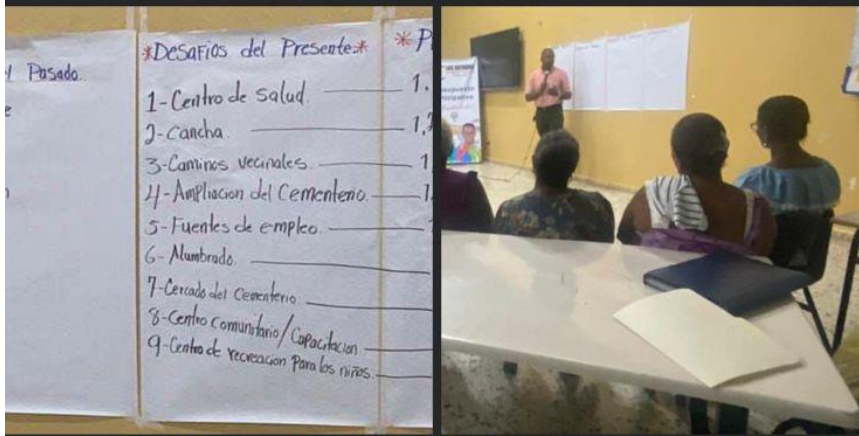 l Pasado
*Desafios del Presente*
1-Centro de Salud.
2-Cancha
3-Caminos vecinales.
4-Ampliacion del Cementerio.
5-Fuentes de empleo.
6-Alumbrado.
7-Cercado del Cementerio
8-Centro Comunitario/Capacitacion
9-Centro de recreacion Para los niños.
*P
1.
1,2
1
1.